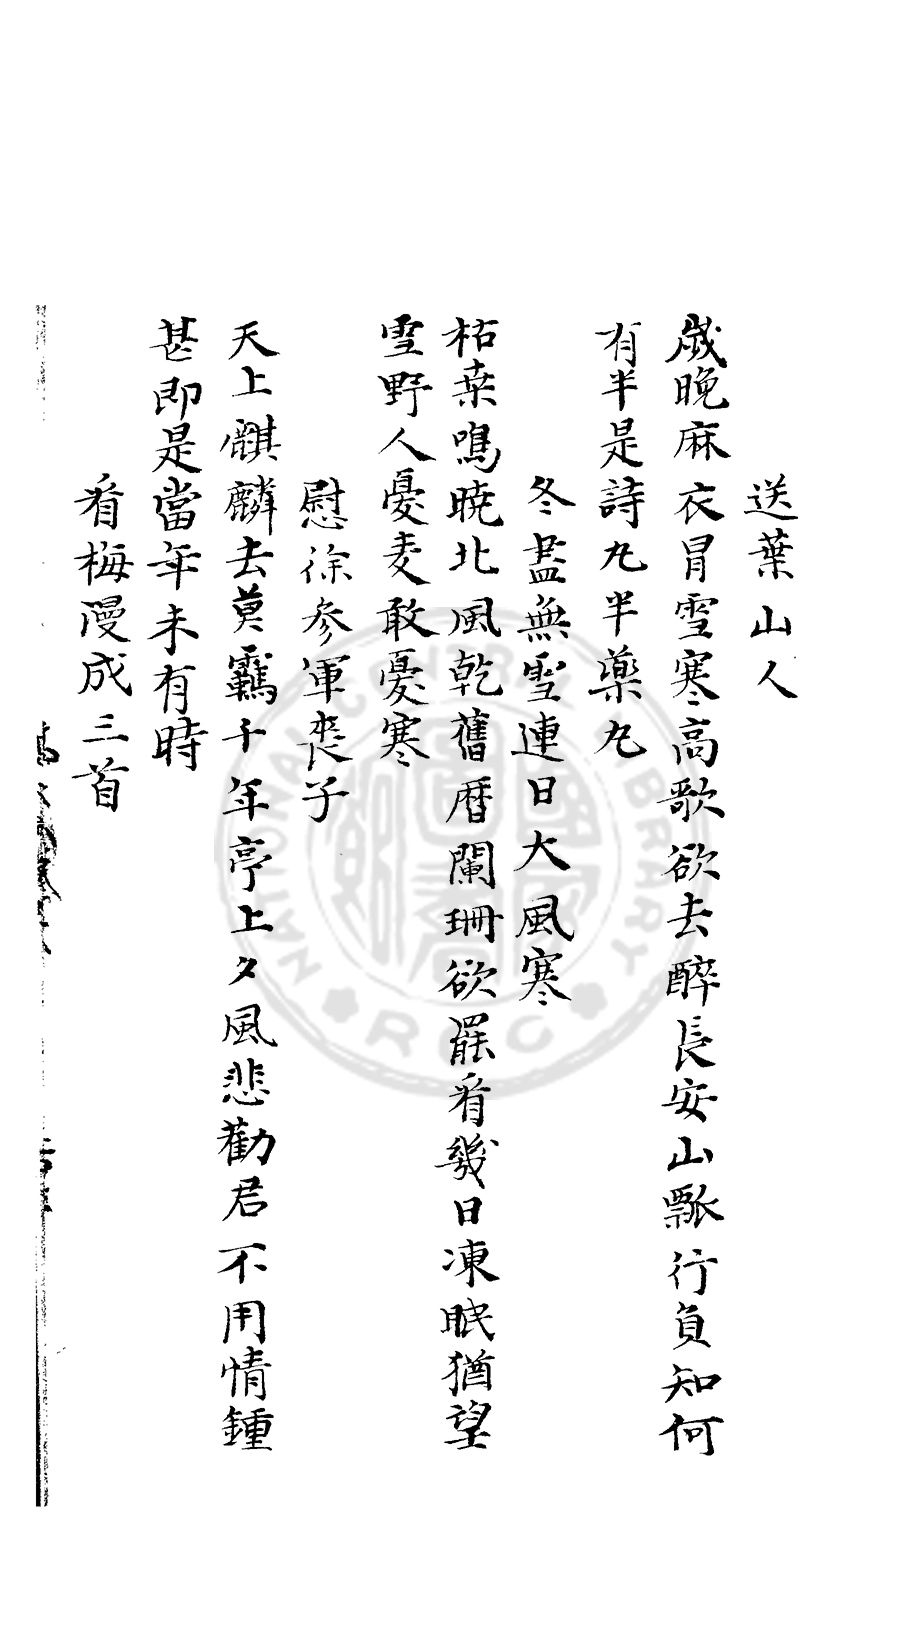 送葉山人
歲晚麻衣冐雪寒高歌欲去醉長安山瓢行負知何
有半是詩丸半藥丸
冬盡無雪連日大風寒
枯桒鳴曉北風乾舊曆闌珊欲罷看幾日凍眠猶望
雪野人憂麦敢憂寒
慰徐参軍喪子
天上麒麟去莫羈千年亭上夕風悲勸君不用情鍾
甚即是當年未有時
看梅漫成三首
NATIONAL CENTRAL LIBRARY
ROC